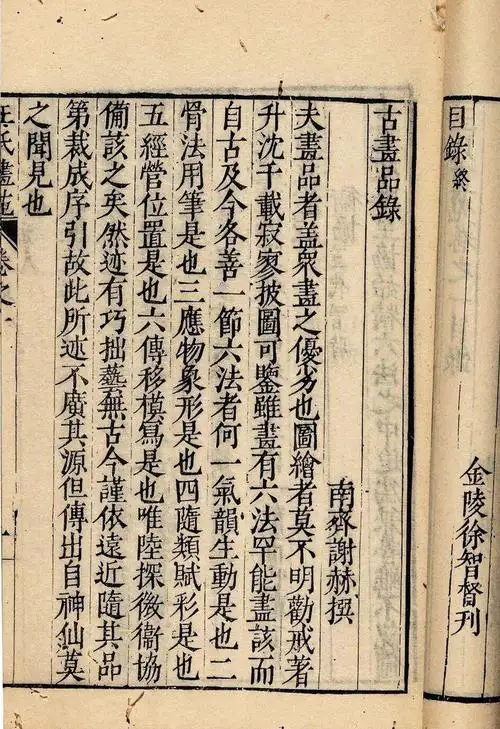 目錄終
金陵徐智督刊
古畫品錄
南齊謝赫撰
夫畫品者盖衆畫之優劣也圖繪者莫不明勸戒著
升沈千載寂寥披圖可鑒雖畫有六法罕能盡該而
自古及今各善一節六法者何一氣韻生動是也二
骨法用筆是也三應物象形是也四隨類賦彩是也
五經營位置是也六傳移模寫是也唯陸探微衞協
備該之矣然迹有巧拙藝無古今謹依遠近隨其品
第裁成序引故此所述不廣其源但傳出自神仙莫
之聞見也
王氏畫苑 卷之一